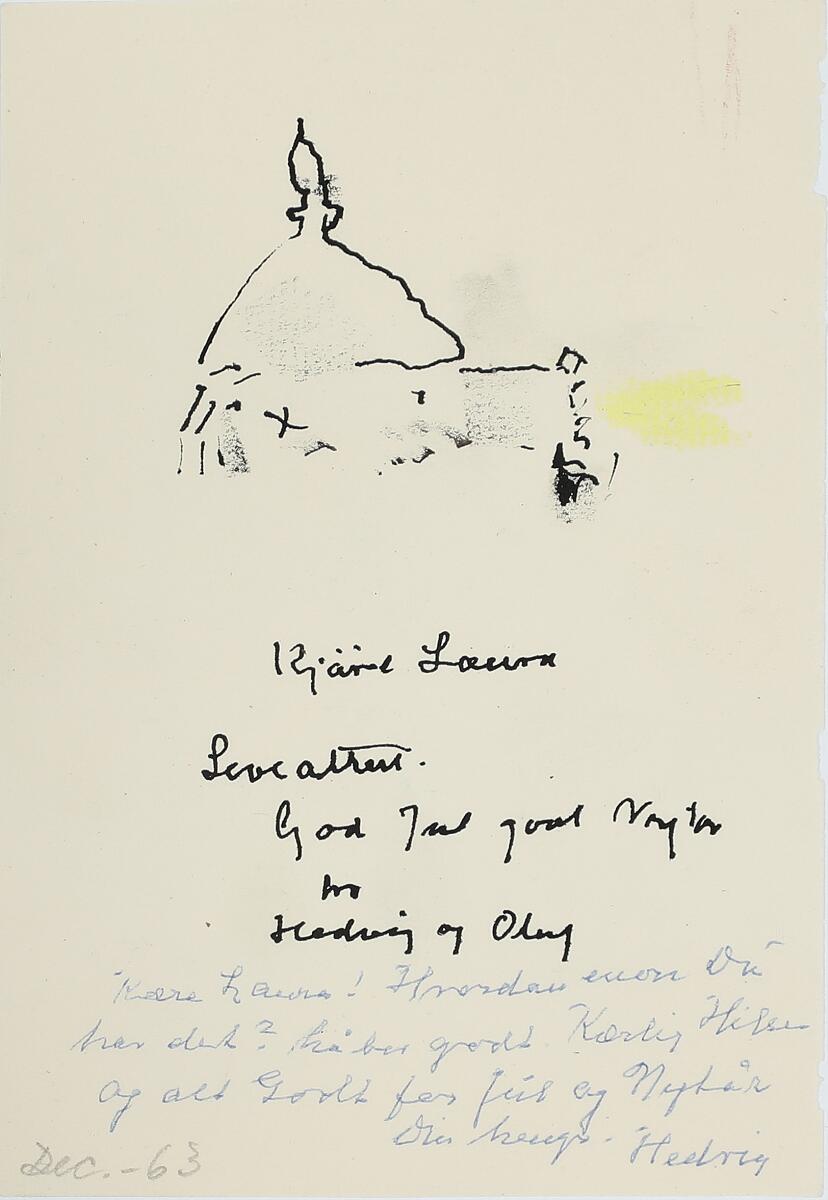 Kjäre Laura
God Jul godt Nytår
fra
Hedvig og Oluf
Kære Laura! Hvordan mon Du
har det? håber godt. Kærlig Hilsen
og alt Godt for Jul og Nytår
Din heng. Hedvig
Dec. - 63